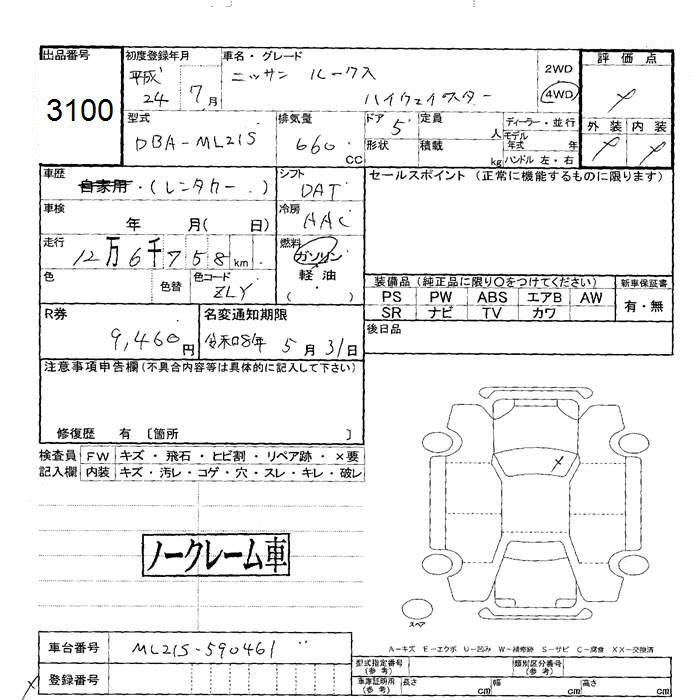 出品番号 初度登録年月 車名・グレード 評価点
3100 平成24 7月 ニッサン ルークス 2WD
ハイウェイスター 4WD
型式 排気量 ドア 定員 ディーラー・並行 外装 内装
DBA-ML21S 660CC 5 人 モデル年式 年
形状 積載 kg ハンドル 左・右
車歴 シフト セールスポイント (正常に機能するものに限ります)
自家用・(レンタカー) DAT
車検 冷房
年 月( 日) AAC
走行 燃料
12万6千758km ガソリン
軽油
( )
色 色替 色コード 装備品 (純正品に限り○をつけてください) 新車保証書
ZLY PS PW ABS エアB AW 有・無
SR ナビ TV カワ
R券 名変通知期限 後日品
9,460円 令和8年 5月31日
注意事項申告欄(不具合内容等は具体的に記入して下さい)
修復歴 有 〔箇所 〕
検査員 FW キズ・飛石・ヒビ割・リペア跡・×要
記入欄 内装 キズ・汚レ・コゲ・穴・スレ・キレ・破レ
ノークレーム車
スペア
A-キズ E-エクボ U-凹み W-補修跡 S-サビ C-腐食 XX-交換済
車台番号 ML21S-590461
型式指定番号(参考) 類別区分番号(参考)
登録番号 車庫証明用(参考) 長さ cm 幅 cm 高さ cm